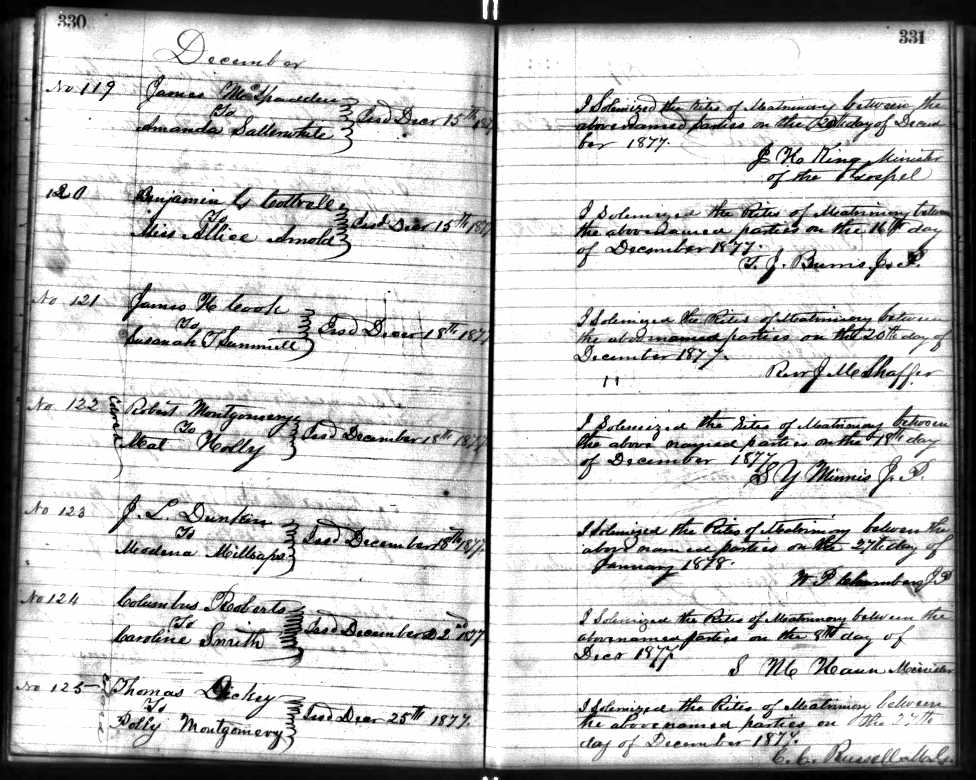 330
December
No 119
James McSpadden
To
Amanda Satterwhite
Issd Decr 15th 1877
120
Benjamin G Cottrell
To
Miss Allice Arnold
Issd Decr 15th 1877
No 121
James H Cook
To
Susanah T Summitt
Issd Decer 18th 1877
No 122
Colored
Robert Montgomery
To
Mat Holly
Issd December 18th 1877
No 123
J. L. Dunkin
To
Meadena Millsaps
Issd December 18th 1877
No 124
Columbus Roberts
To
Caroline Smith
Issd December 2nd 1877
No 125
Colored
Thomas Dickey
To
Polly Montgomery
Issd Decr 25th 1877
331
I Solemized the Rites of Matrimony between the
above named parties on the 20th day of Decem
ber 1877.
J H King Minister
of the Gospel
I Solemized the Rites of Matrimony between
the above named parties on the 16th day
of December 1877.
T. J. Burris J. P.
I Solemized the Rites of Matrimony between
the above named parties on the 20th day of
December 1877.
Revr J McShaffer
I Solemized the Rites of Matrimony between
the above named parties on the 18th day
of December 1877
S Y Minnis J. P.
I Solemized the Rites of Matrimony between the
above named parties on the 27th day of
January 1878.
W P Chambers J P
I Solemized the Rites of Matrimony between the
above named parties on the 8th day of
Decr 1877
S M Haun Minister
I Solemized the Rites of Matrimony between
the above named parties on the 27th
day of December 1877.
C. C. Russell